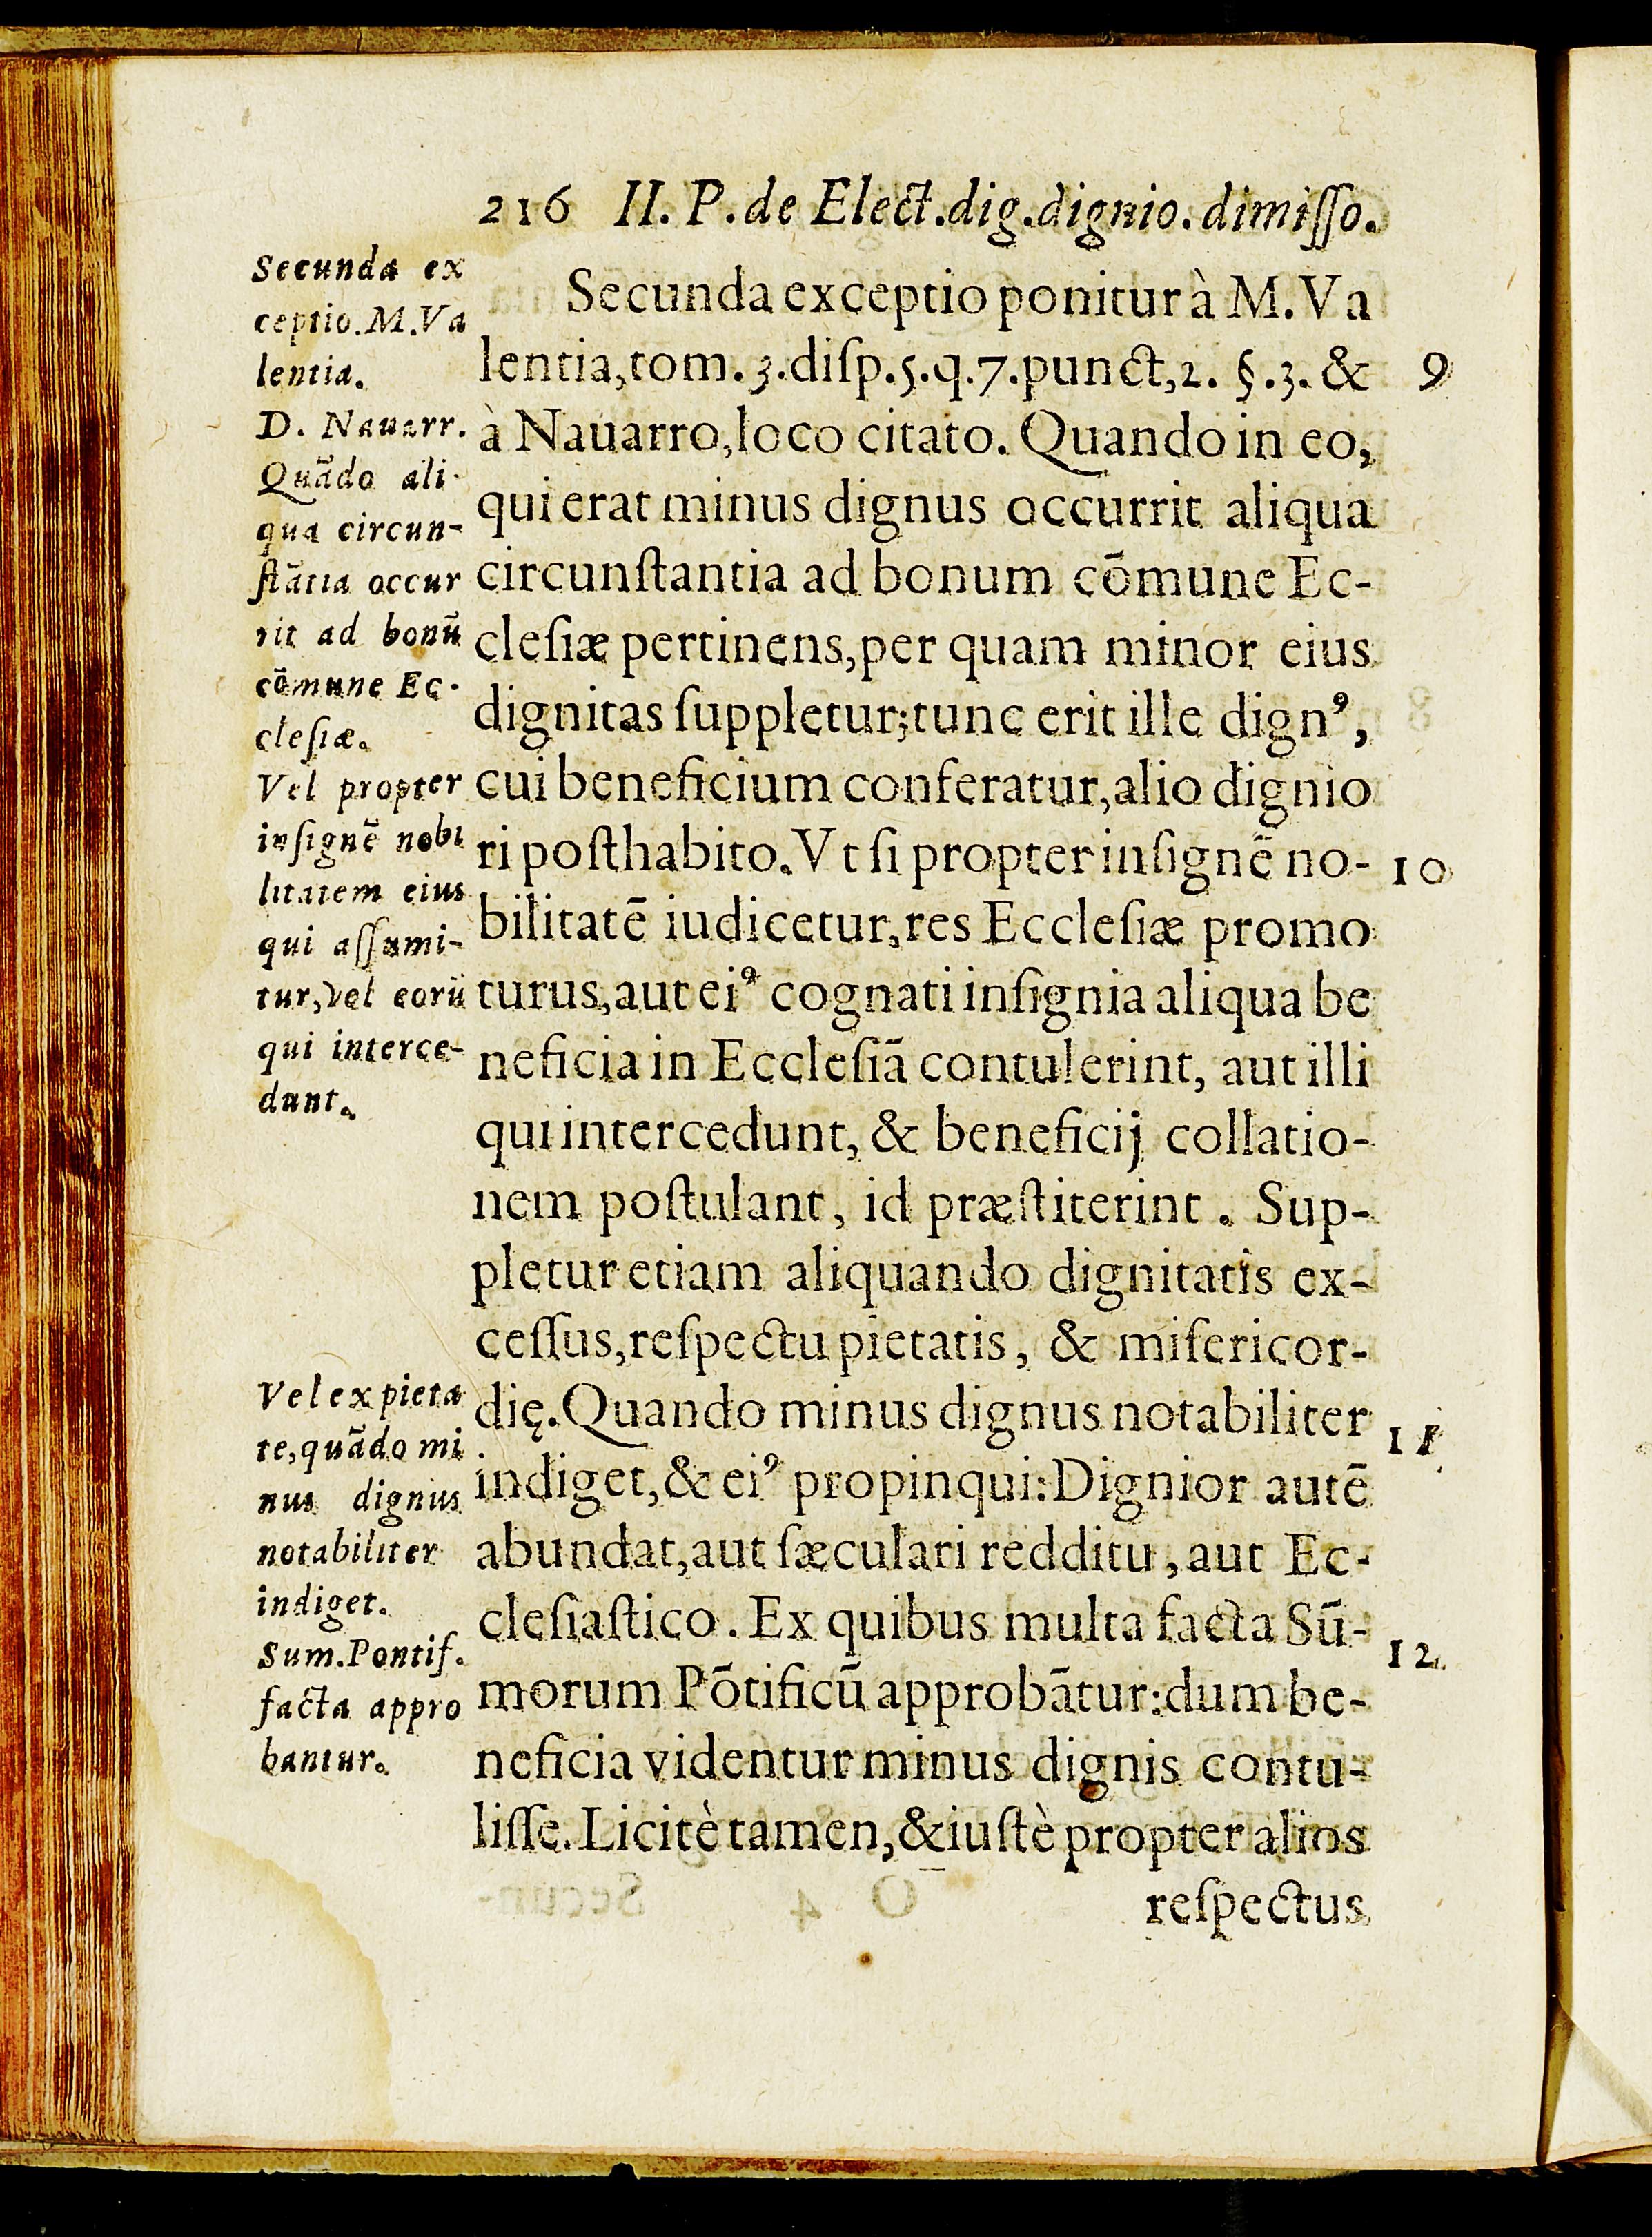 216 II. P. de Elect.dig.dignio.dimiſſo.
Secunda ex
ceptio.M.Va
lentia.
D. Nauarr.
Quãdo ali-
qua circun-
ſtãtia occur
rit ad bonũ
cõmune Ec-
cleſiæ.
Vel propter
inſignẽ nobi
litatem eius
qui aſſumi-
tur,vel eorũ
qui interce-
dunt.
Vel ex pieta
te,quãdo mi
nus dignus
notabiliter
indiget.
Sum.Pontif.
facta appro
bantur.
Secunda exceptio ponitur à M. Va
lentia,tom.3.diſp.5.q.7.punct,2. §.3. &
9
à Nauarro,loco citato. Quando in eo,
qui erat minus dignus occurrit aliqua
circunſtantia ad bonum cõmune Ec-
cleſiæ pertinens,per quam minor eius
dignitas ſuppletur;tunc erit ille dignꝰ,
cui beneficium conferatur,alio dignio
ri poſthabito.Vt ſi propter inſignẽ no-
10
bilitatẽ iudicetur,res Eccleſiæ promo
turus,aut eiꝰ cognati inſignia aliqua be
neficia in Eccleſiã contulerint, aut illi
qui intercedunt, & beneficij collatio-
nem poſtulant, id præſtiterint. Sup-
pletur etiam aliquando dignitatis ex-
ceſſus,reſpectu pietatis, & miſericor-
dię.Quando minus dignus notabiliter
11
indiget,& eiꝰ propinqui:Dignior autẽ
abundat,aut ſæculari redditu,aut Ec-
cleſiaſtico. Ex quibus multa facta Sũ-
12
morum Põtificũ approbãtur:dum be-
neficia videntur minus dignis contu-
liſſe.Licitè tamen,&iuſtè propter alios
reſpectus